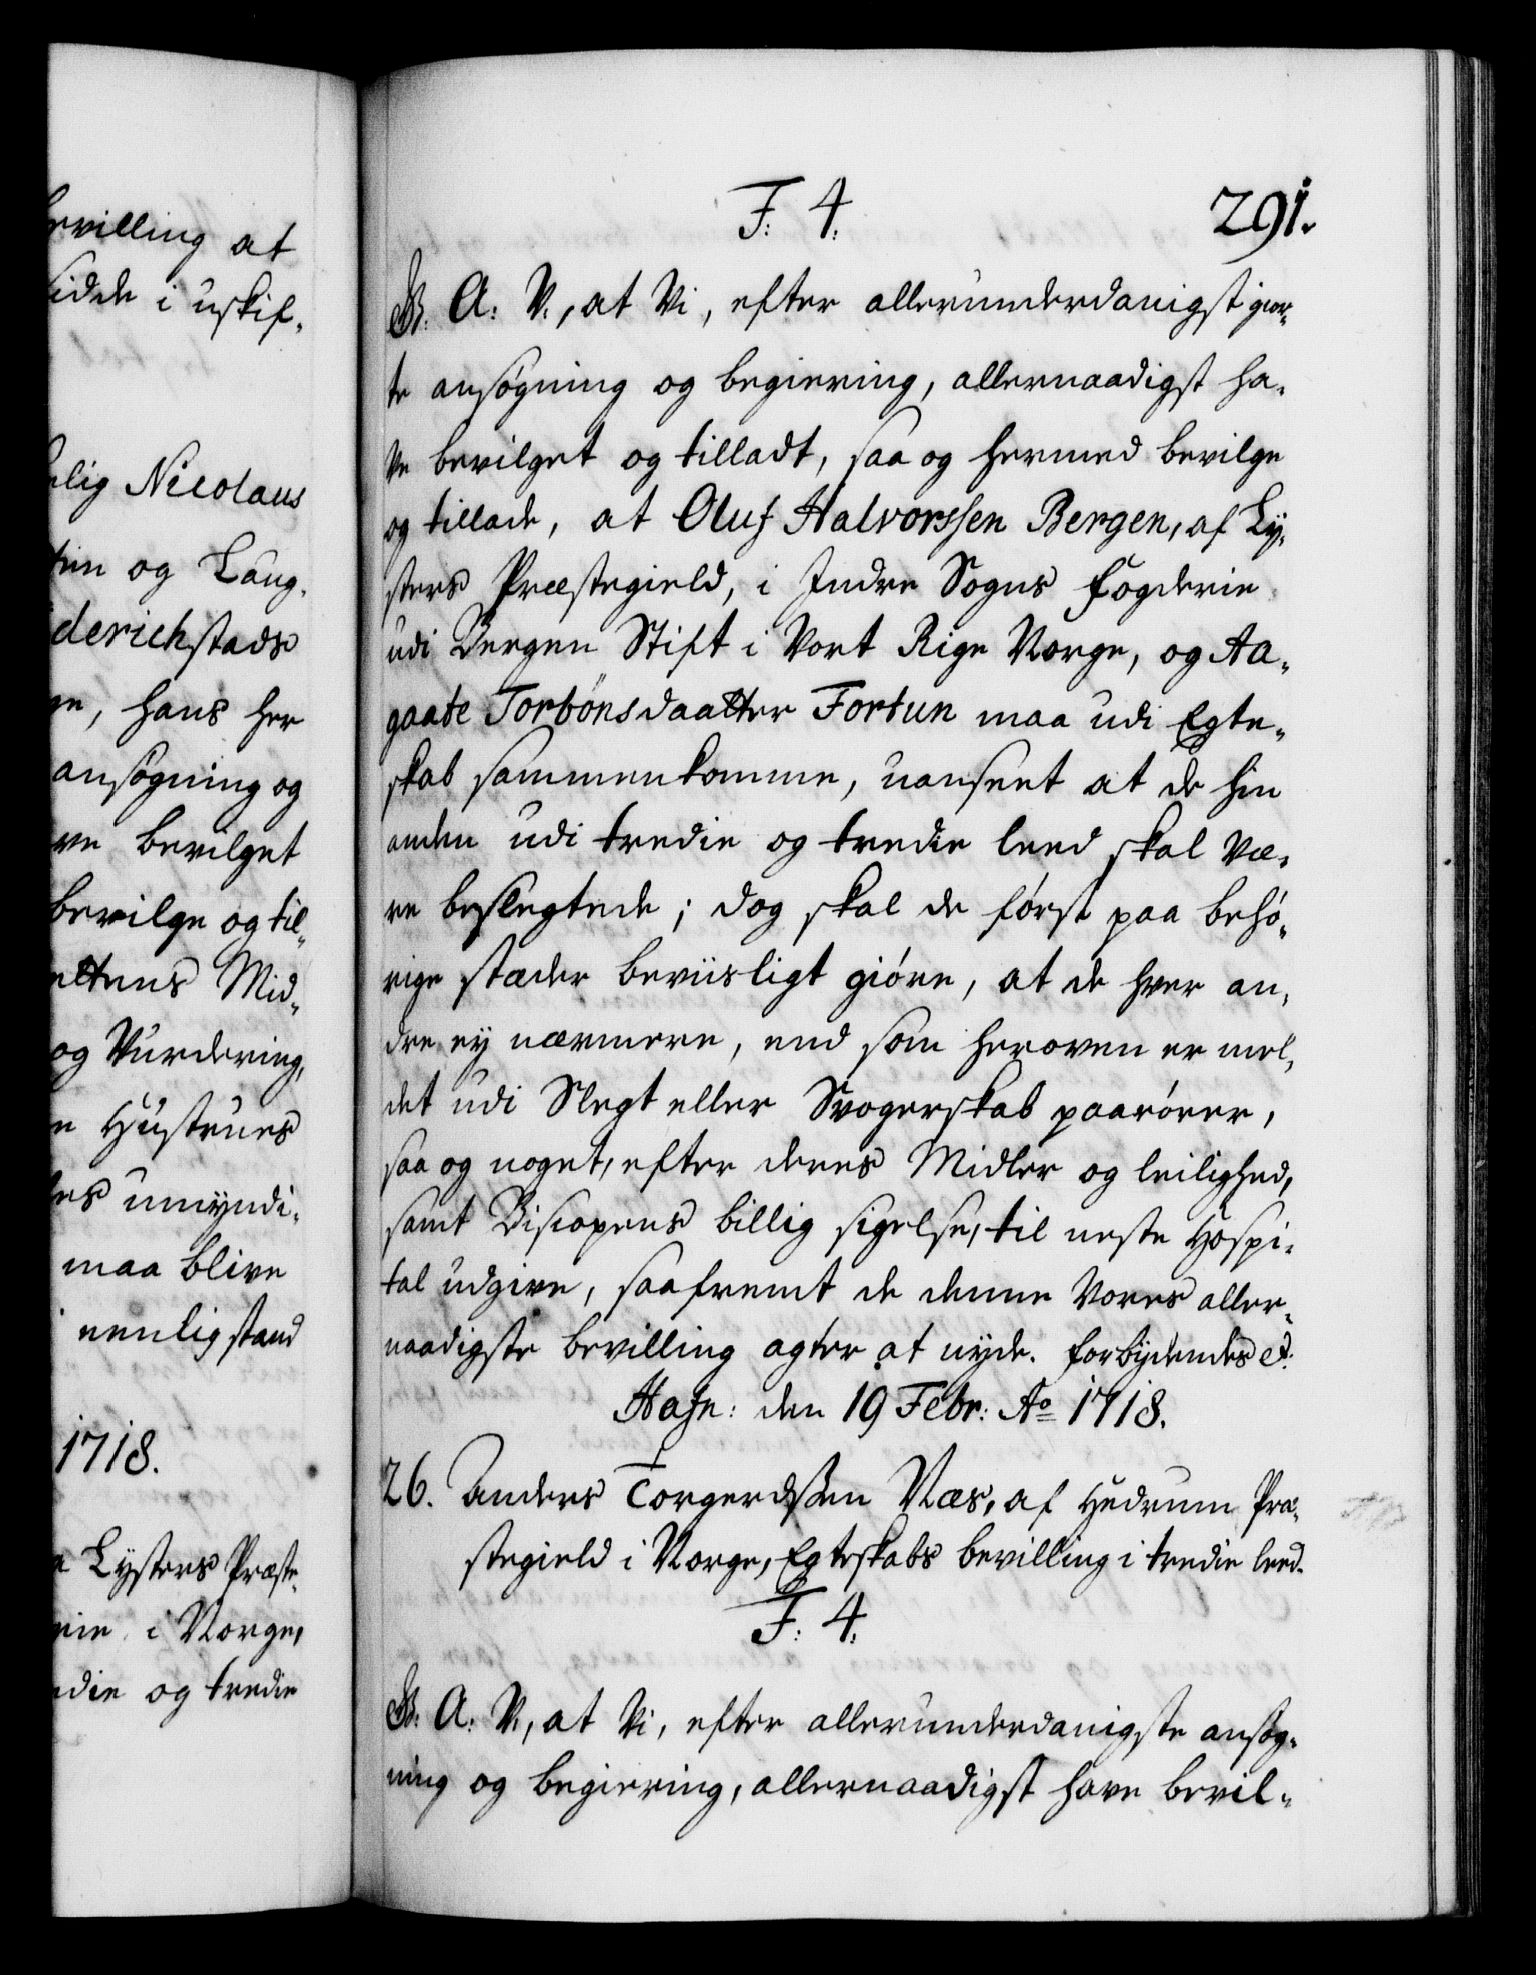 ervilling at
sidde i uskif-
elig Nicolaus
tin og Laug-
derichstads
ge, hans her
ansøgning og
ve bevilget
bevilge og til-
ettens Mid-
og Vurdering,
n Hustrues
des umyndi-
maa blive
nenlig stand
1718.
n Lysters Præste-
rie i Norge,
edie og tredie
F: 4. 291.
G: A: V., at Vi, efter allerunderdanigst gior-
te ansøgning og begiering, allernaadigst ha-
ve bevilget og tilladt, saa og hermed bevilge
og tillade, at Oluf Halvorssen Bergen, af Ly-
sters Præstegield, i Indre Sogns Fogderie
udi Bergen Stift i Vort Rige Norge, og Aa-
gaate Torbönsdaatter Fortun maa udi Egte-
skab sammenkomme, uanseet at de hin
anden udi tredie og tredie leed skal væ-
re beslegtede; dog skal de først paa behø-
rige stæder beviisligt giöre, at de hver an-
dre ey nærmere, end som heroven er mel-
det udi Slegt eller Svogerskab paarörer,
saa og noget, efter deres Midler og leilighed,
samt Biscopens billig sigelse, til neste Hospi-
tal udgive, saafremt de denne Vores aller-
naadigste bevilling agter at nyde. Forbydendes et.
Hafn: den 19 Febr: Ao 1718.
26. Anders Torgerdssen Næs, af Hedrum Præ-
stegield i Norge, Egteskabs bevilling i tredie leed.
F: 4.
G: A: V., at Vi, efter allerunderdanigste ansøg-
ning og begiering, allernaadigst have bevil-